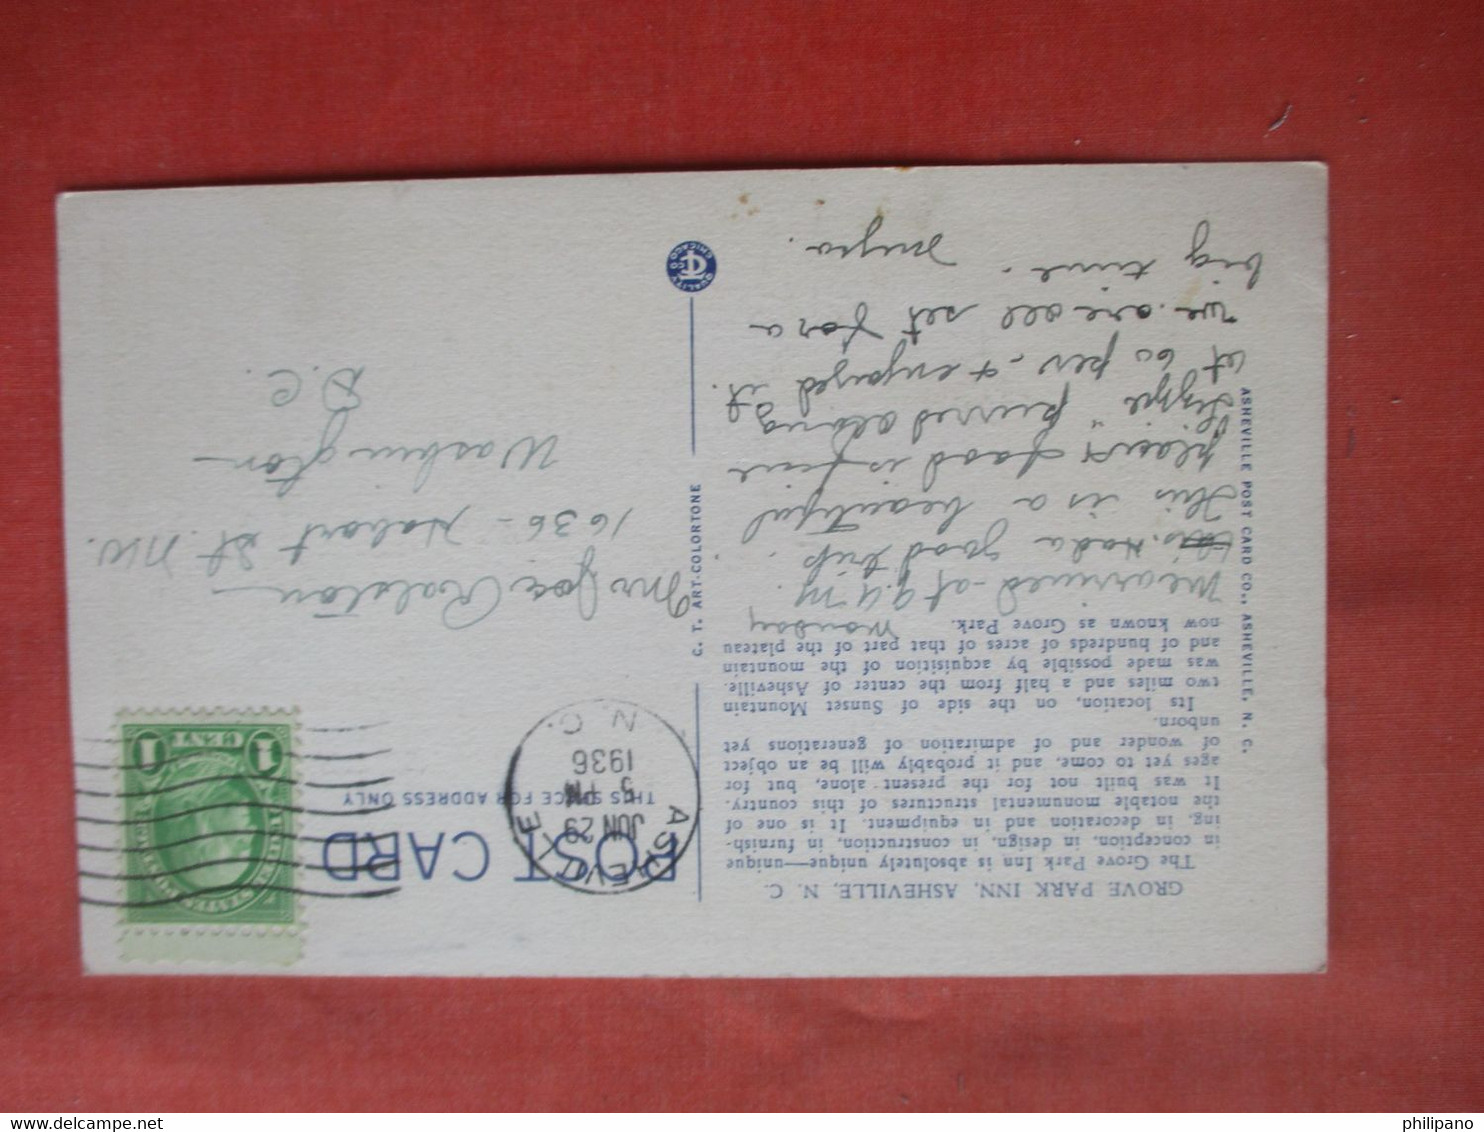 GROVE PARK INN, ASHEVILLE, N. C.
The Grove Park Inn is absolutely unique—unique
in conception, in design, in construction, in furnish-
ing, in decoration and in equipment. It is one of
the notable monumental structures of this country.
It was built not for the present alone, but for
ages yet to come, and it probably will be an object
of wonder and of admiration of generations yet
unborn.
Its location, on the side of Sunset Mountain
two miles and a half from the center of Asheville,
was made possible by acquisition of the mountain
and of hundreds of acres of that part of the plateau
now known as Grove Park.
Monday
We arrived at 9.4
Had a good trip.
This is a beautiful
place & food is fine
"Lizzie" purred along
at 60 per & enjoyed it.
We are all set for a
big time.
ASHEVILLE POST CARD CO., ASHEVILLE, N. C.
C. T. ART-COLORTONE
QUALITY
CT
CO
CHICAGO
POST CARD
THIS SPACE FOR ADDRESS ONLY
ASHEVILLE
JUN 29
5 PM
1936
N. C.
1 CENT 1
Mr Joe Ralston
1636 - Hobart St. NW.
Washington
D.C.
philipano